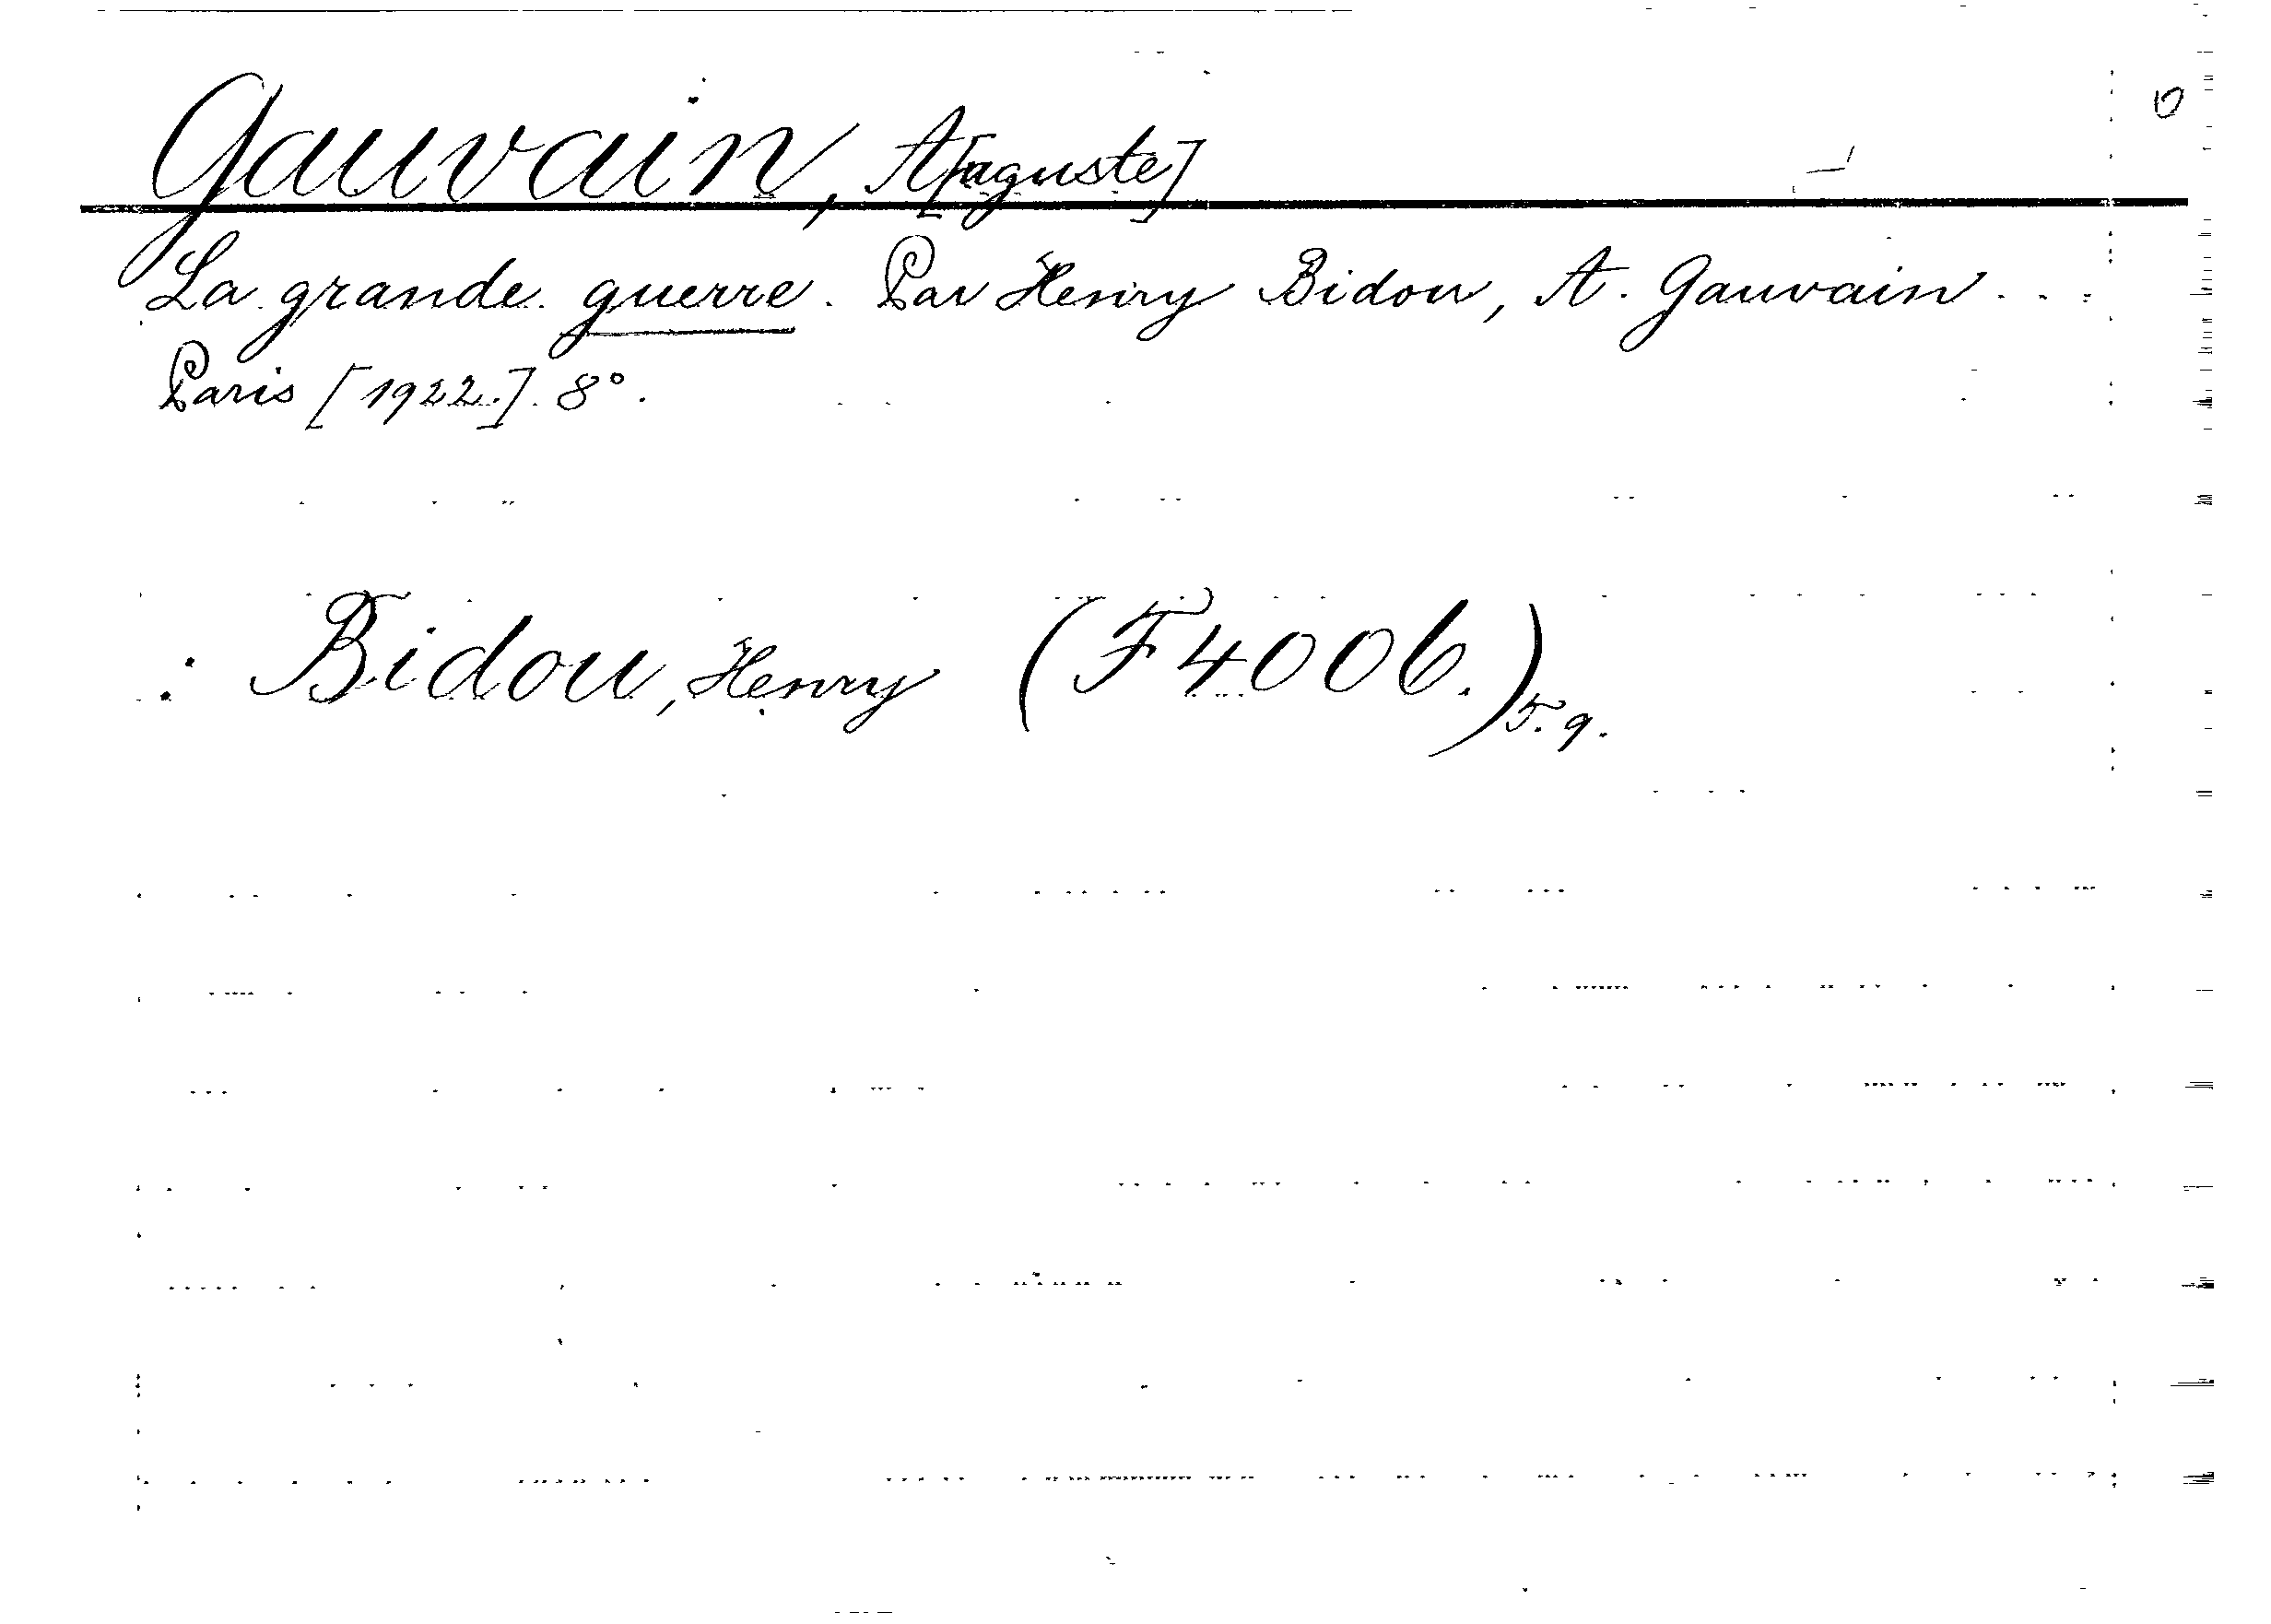 Gauvain, A[uguste]
La grande guerre. Par Henry Bidou, A. Gauvain...
Paris [1922.]. 8°.
: Bidou, Henry (F 400 b.) T. 9.